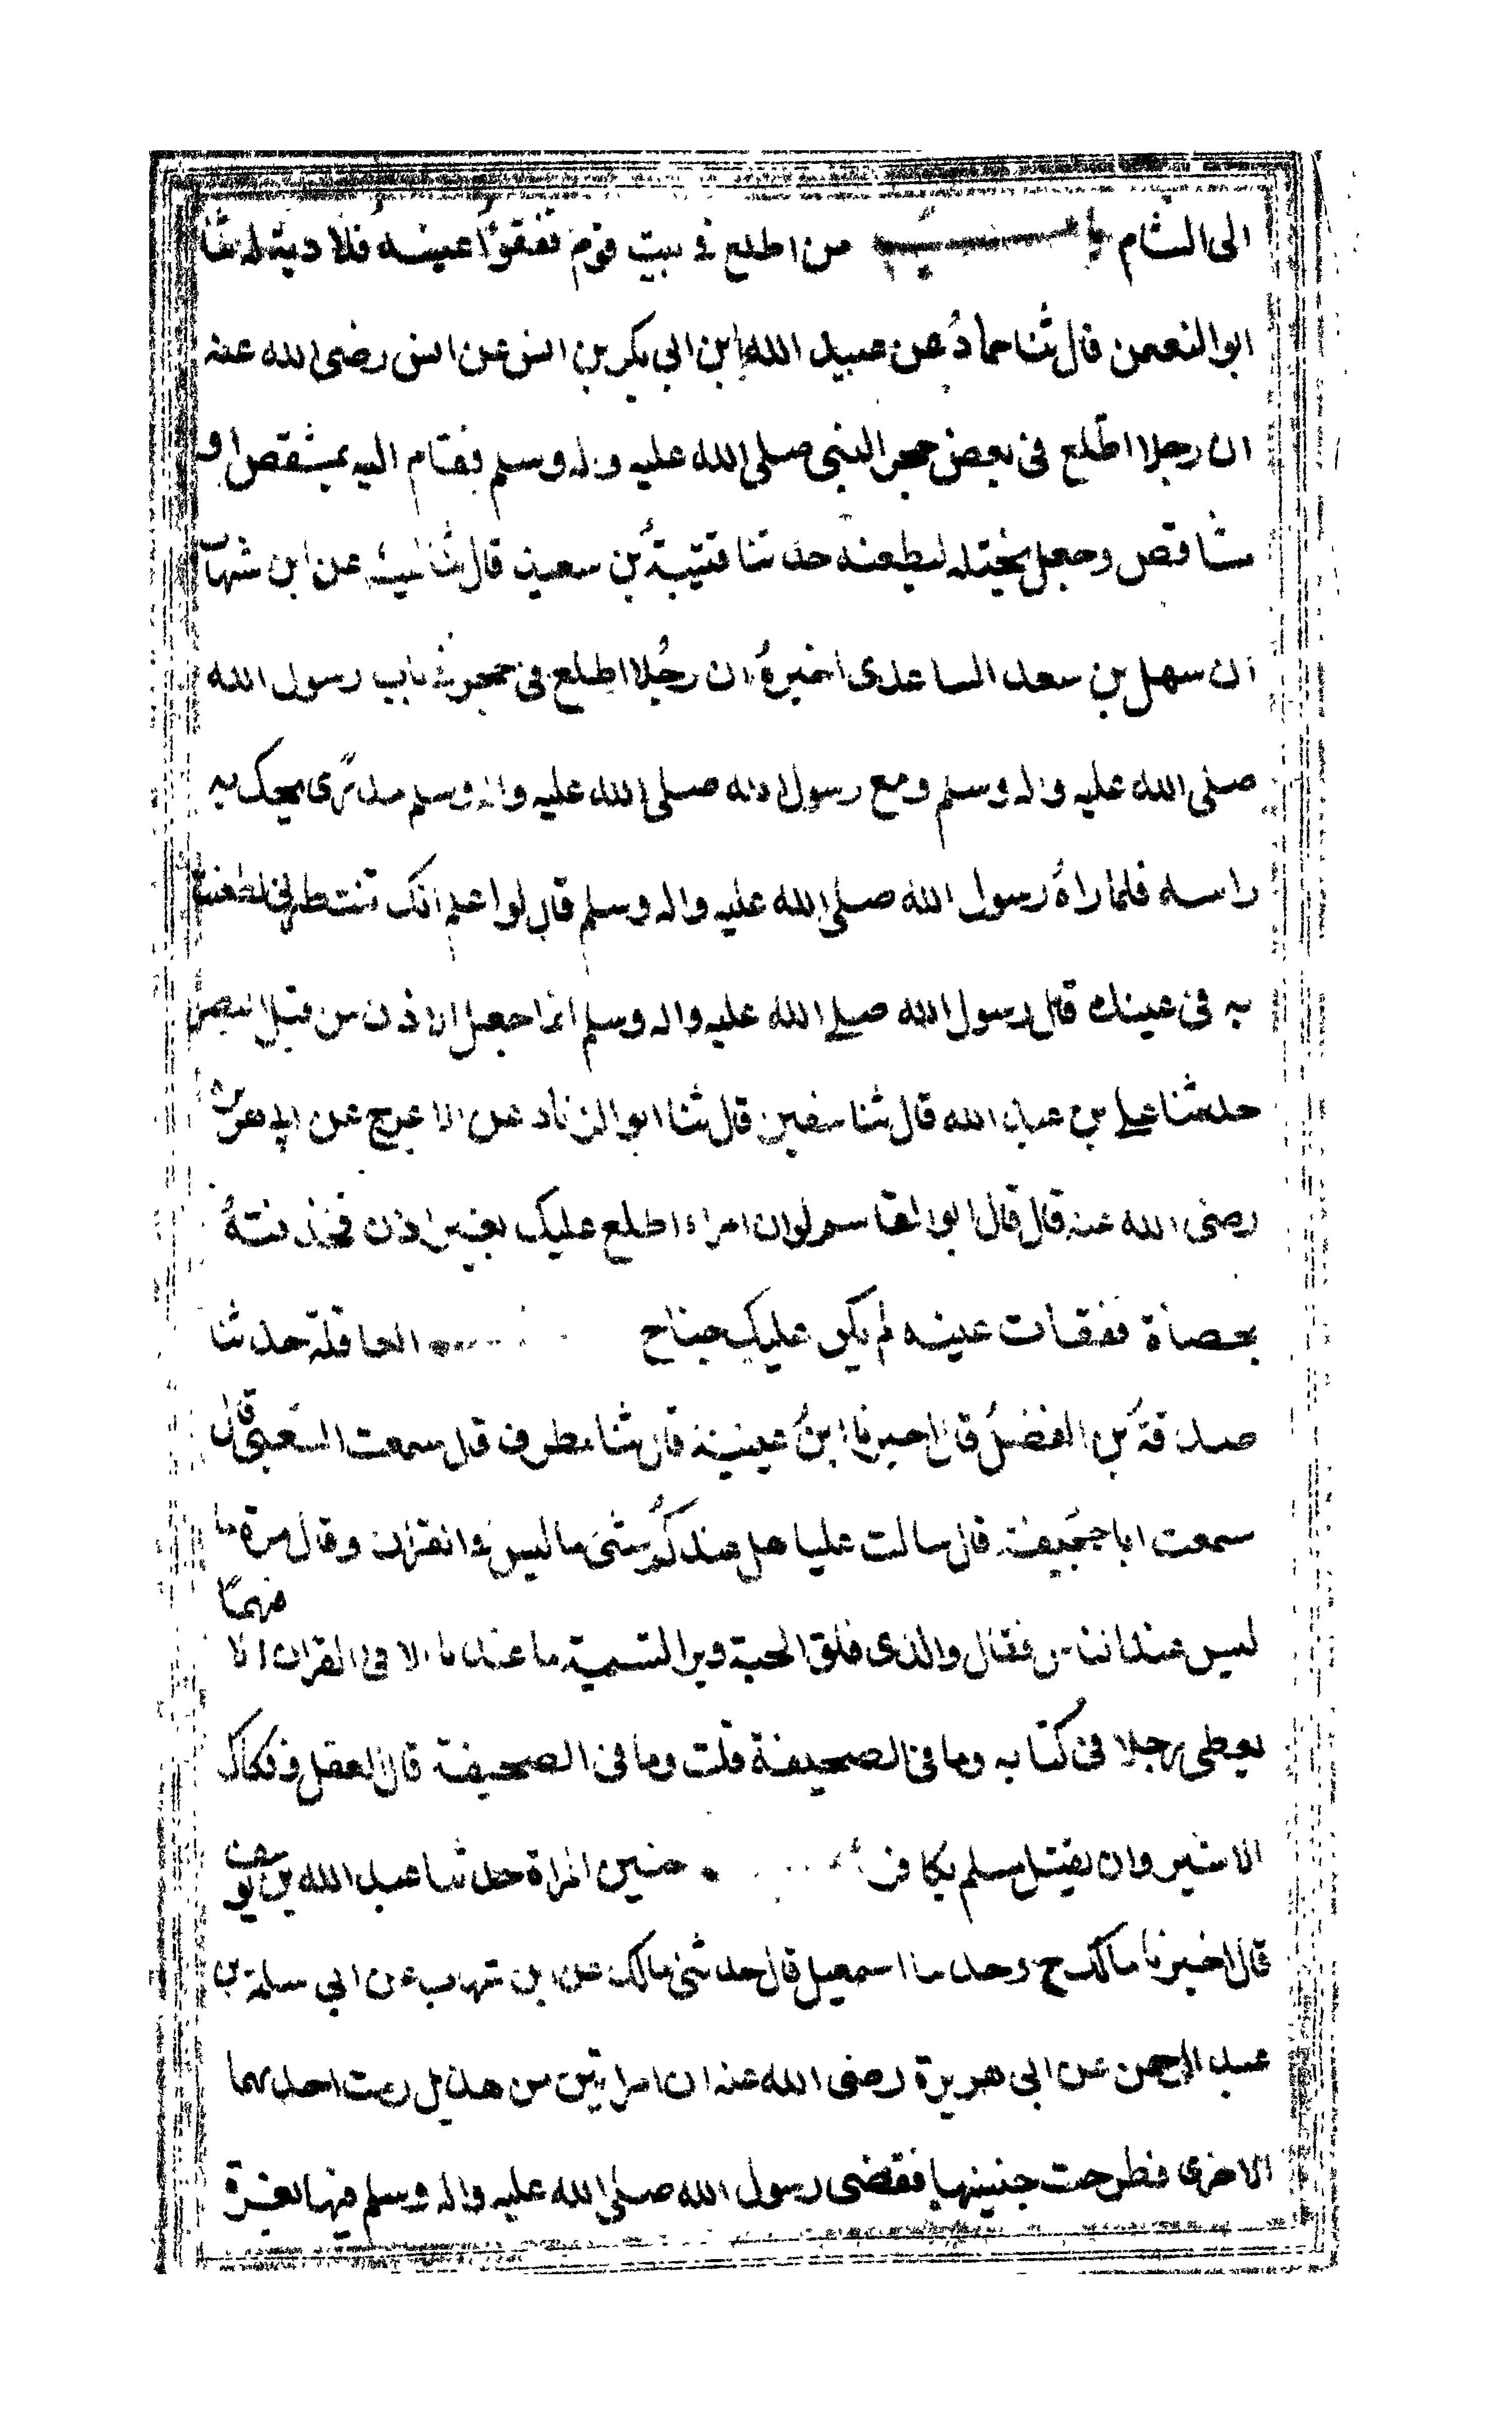 الى الشام باب من اطلع فى بيت قوم ففقؤا عينه فلا دية له ثنا
ابو النعمن قال ثنا حمادُ عن عبيد الله ابن ابي بكر بن انس عن انس رضى الله عنه
ان رجلا اطلع فى بعض حجر النبى صلى الله عليه واله وسلم فقام اليه بمشقص او
مشاقص وجعل يختله ليطعنه حدثنا قتيبةُ بن سعيد قال ثنا ليث عن ابن شهاب
ان سهل بن سعد الساعدى اخبرهُ ان رجُلا اطلع فى حجر فى باب رسول الله
صلى الله عليه واله وسلم ومع رسول الله صلى الله عليه واله وسلم مدرًى يحك به
راسه فلما راهُ رسول الله صلى الله عليه واله وسلم قال لو اعلم انك تنتظرنى لطعنت
به فى عينك قال رسول الله صلى الله عليه واله وسلم انما جعل الاذن من قبل البصر
حدثنا على بن عبد الله قال ثنا سفين قال ثنا ابو الزناد عن الاعرج عن ابى هريرة
رضى الله عنه قال قال ابو القاسم لو ان امراء اطلع عليك بغير اذن فخذفتهُ
بحصاة ففقات عينه لم يكن عليك جناح العاقلة حدثنا
صدقةُ بن الفضلُ قال اخبرنا ابنُ عيينة قال ثنا مطرف قال سمعت الشعبى قال
سمعت ابا جحيفة قال سالت عليا هل عندكُم شئ ما ليس فى القران وقال مرة ما
ليس عند الناس فقال والذى فلق الحبة وبرا النسمة ما عندنا الا فى القران الا فهما
يعطى رجلا فى كتابه وما فى الصحيفة قلت وما فى الصحيفة قال العقل وفكاك
الاسير وان لا يقتل مسلم بكافر جنين المراة حدثنا عبد الله بن يوسف
قال اخبرنا مالك ح وحدثنا اسمعيل قال حدثنى مالك عن ابن شهاب عن ابي سلمة بن
عبد الرحمن عن ابى هريرة رضى الله عنه ان امراتين من هذيل رمت احدىهما
الاخرى فطرحت جنينها فقضى رسول الله صلى الله عليه واله وسلم فيها بغرة